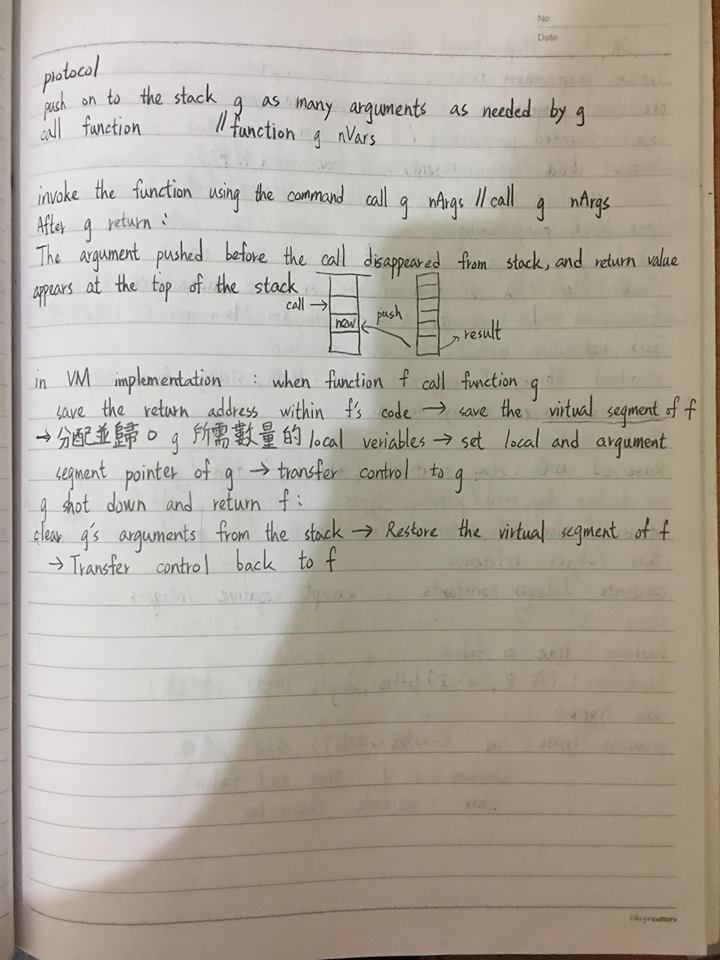 No.
Date
protocol
push on to the stack g as many arguments as needed by g
call function //function g nVars
invoke the function using the command call g nArgs //call g nArgs
After g return :
The argument pushed before the call disappeared from stack, and return value
appears at the top of the stack
call →
new
push
result
in VM implementation : when function f call function g
save the return address within f's code → save the virtual segment of f
→ 分配並歸0 g 所需數量的 local veriables → set local and argument
segment pointer of g → transfer control to g.
g shot down and return f :
clear g's arguments from the stack → Restore the virtual segment of f
→ Transfer control back to f